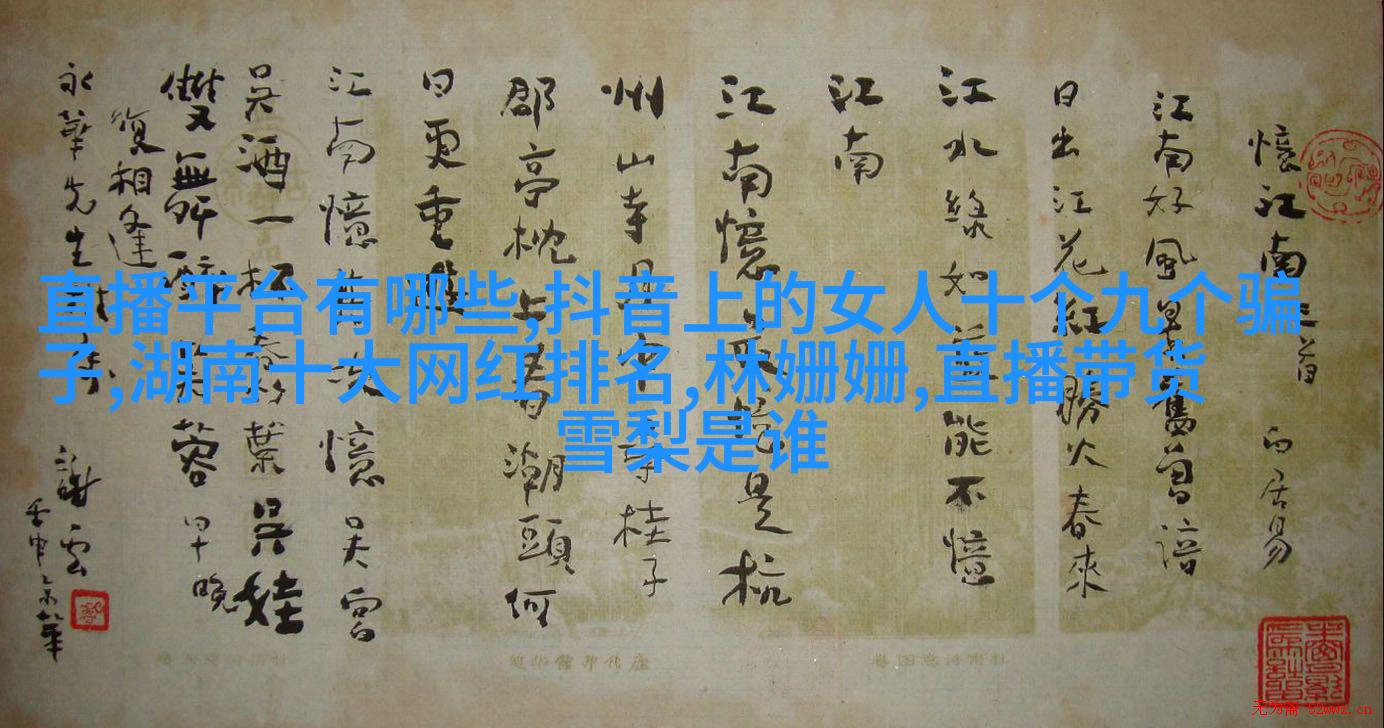 直播平台有哪些,抖音上的女人十个九个骗
子,湖南十大网红排名,林姗姗,直播带货
雪梨是谁
憶江南三首 白居易
江南好風景舊曾諳
日出江花紅勝火春來
江水綠如藍能不憶
江南
江南憶最憶是杭
州山寺月中尋桂子
郡亭枕上看潮頭何
日更重遊
江南憶其次憶吳宮
吳酒一杯春竹葉吳娃
雙舞醉芙蓉早晚
復相逢
永華先生
謝雲
壬申京華
无为斋 52wwz.cn